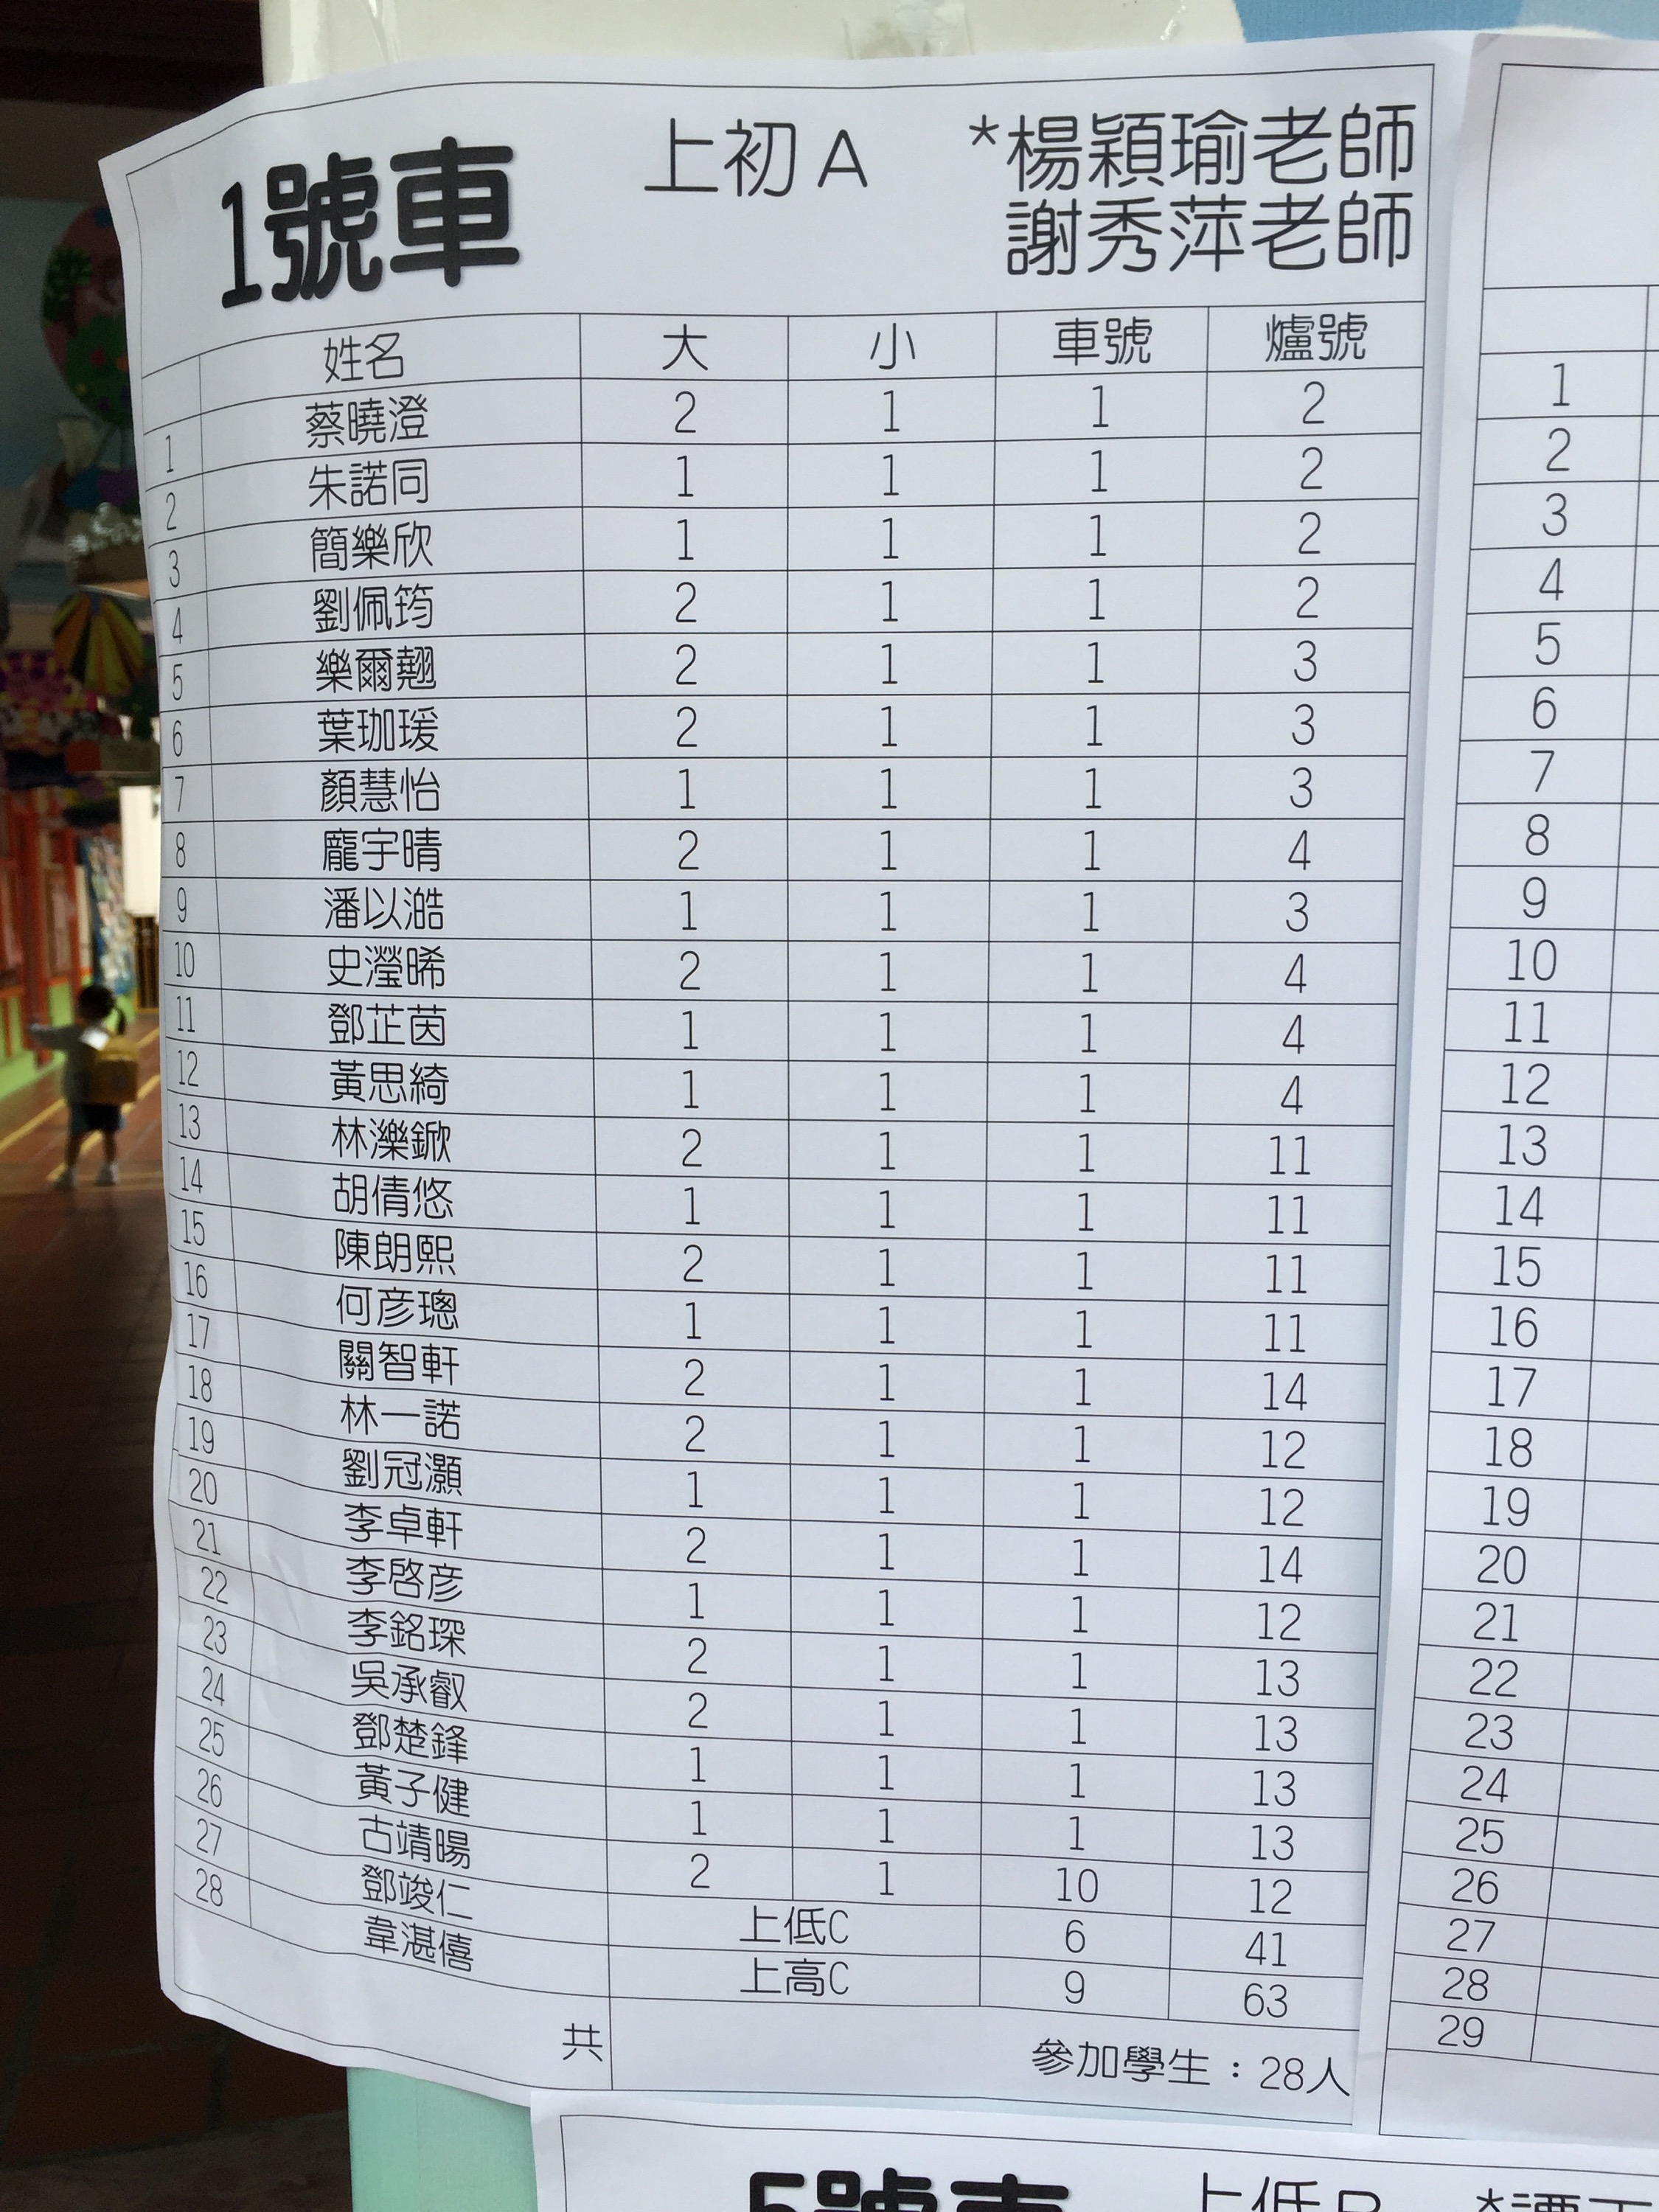 1號車 上初A *楊穎瑜老師
謝秀萍老師
姓名 大 小 車號 爐號
1 蔡曉澄 2 1 1 2
2 朱諾同 1 1 1 2
3 簡樂欣 1 1 1 2
4 劉佩筠 2 1 1 2
5 樂爾翹 2 1 1 3
6 葉珈瑗 2 1 1 3
7 顏慧怡 1 1 1 3
8 龐宇晴 2 1 1 4
9 潘以澔 1 1 1 3
10 史瀅晞 2 1 1 4
11 鄧芷茵 1 1 1 4
12 黃思綺 1 1 1 4
13 林濼鍁 2 1 1 11
14 胡倩悠 1 1 1 11
15 陳朗熙 2 1 1 11
16 何彦璁 1 1 1 11
17 關智軒 2 1 1 14
18 林一諾 2 1 1 12
19 劉冠灝 1 1 1 12
20 李卓軒 2 1 1 14
21 李啓彦 1 1 1 12
22 李銘琛 2 1 1 13
23 吳承叡 2 1 1 13
24 鄧楚鋒 1 1 1 13
25 黃子健 1 1 1 13
26 古靖暘 2 1 10 12
27 鄧竣仁 上低C 6 41
28 韋湛僖 上高C 9 63
共 參加學生：28人
1
2
3
4
5
6
7
8
9
10
11
12
13
14
15
16
17
18
19
20
21
22
23
24
25
26
27
28
29
5號車 上低B